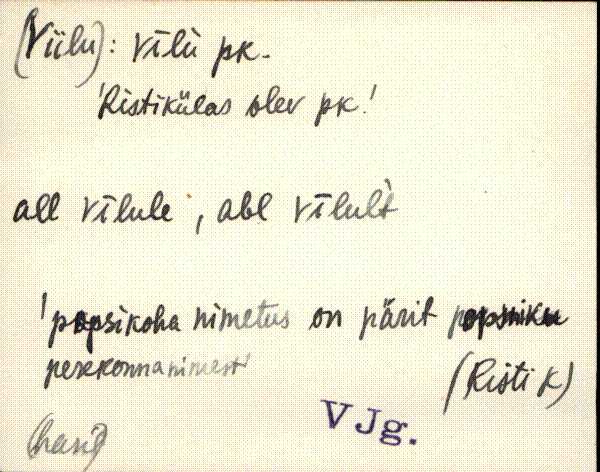 (Viilu): vīlù pk.
'Ristikülas olev pk.'
all vīlule, abl vīlul't
'popsikoha nimetus on pärit popsniku
perekonnanimest'
(Risti k)
VJg.